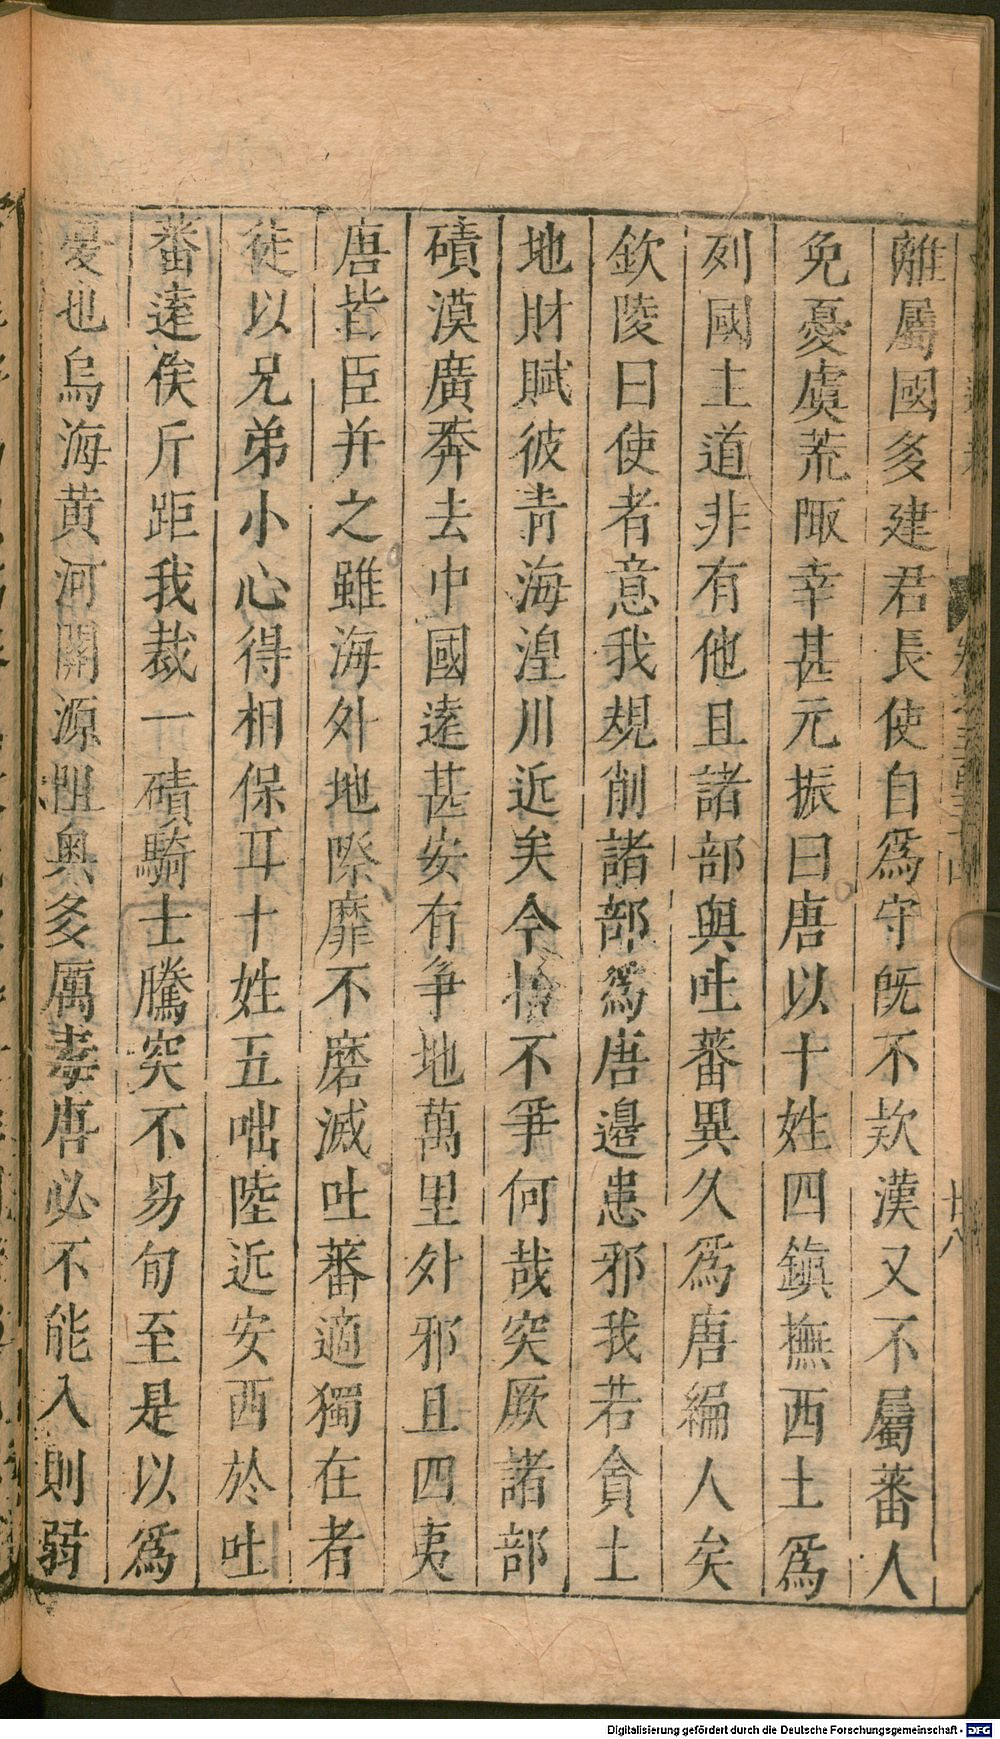 離屬國多建君長使自爲守旣不欵漢又不屬蕃人
免憂虞荒陬幸甚元振曰唐以十姓四鎭撫西土爲
列國主道非有他且諸部與吐蕃異久爲唐編人矣
欽陵曰使者意我規削諸部爲唐邊患邪我若貪土
地財賦彼靑海湟川近矣今捨不爭何哉突厥諸部
磧漠廣莾去中國遠甚安有爭地萬里外邪且四夷
唐皆臣并之雖海外地際靡不磨滅吐蕃適獨在者
徒以兄弟小心得相保耳十姓五咄陸近安西於吐
蕃遠俟斤距我裁一磧騎士騰突不易旬至是以爲
憂也烏海黃河關源阻奥多厲毒唐必不能入則弱
廿八
Digitalisierung gefördert durch die Deutsche Forschungsgemeinschaft - DFG